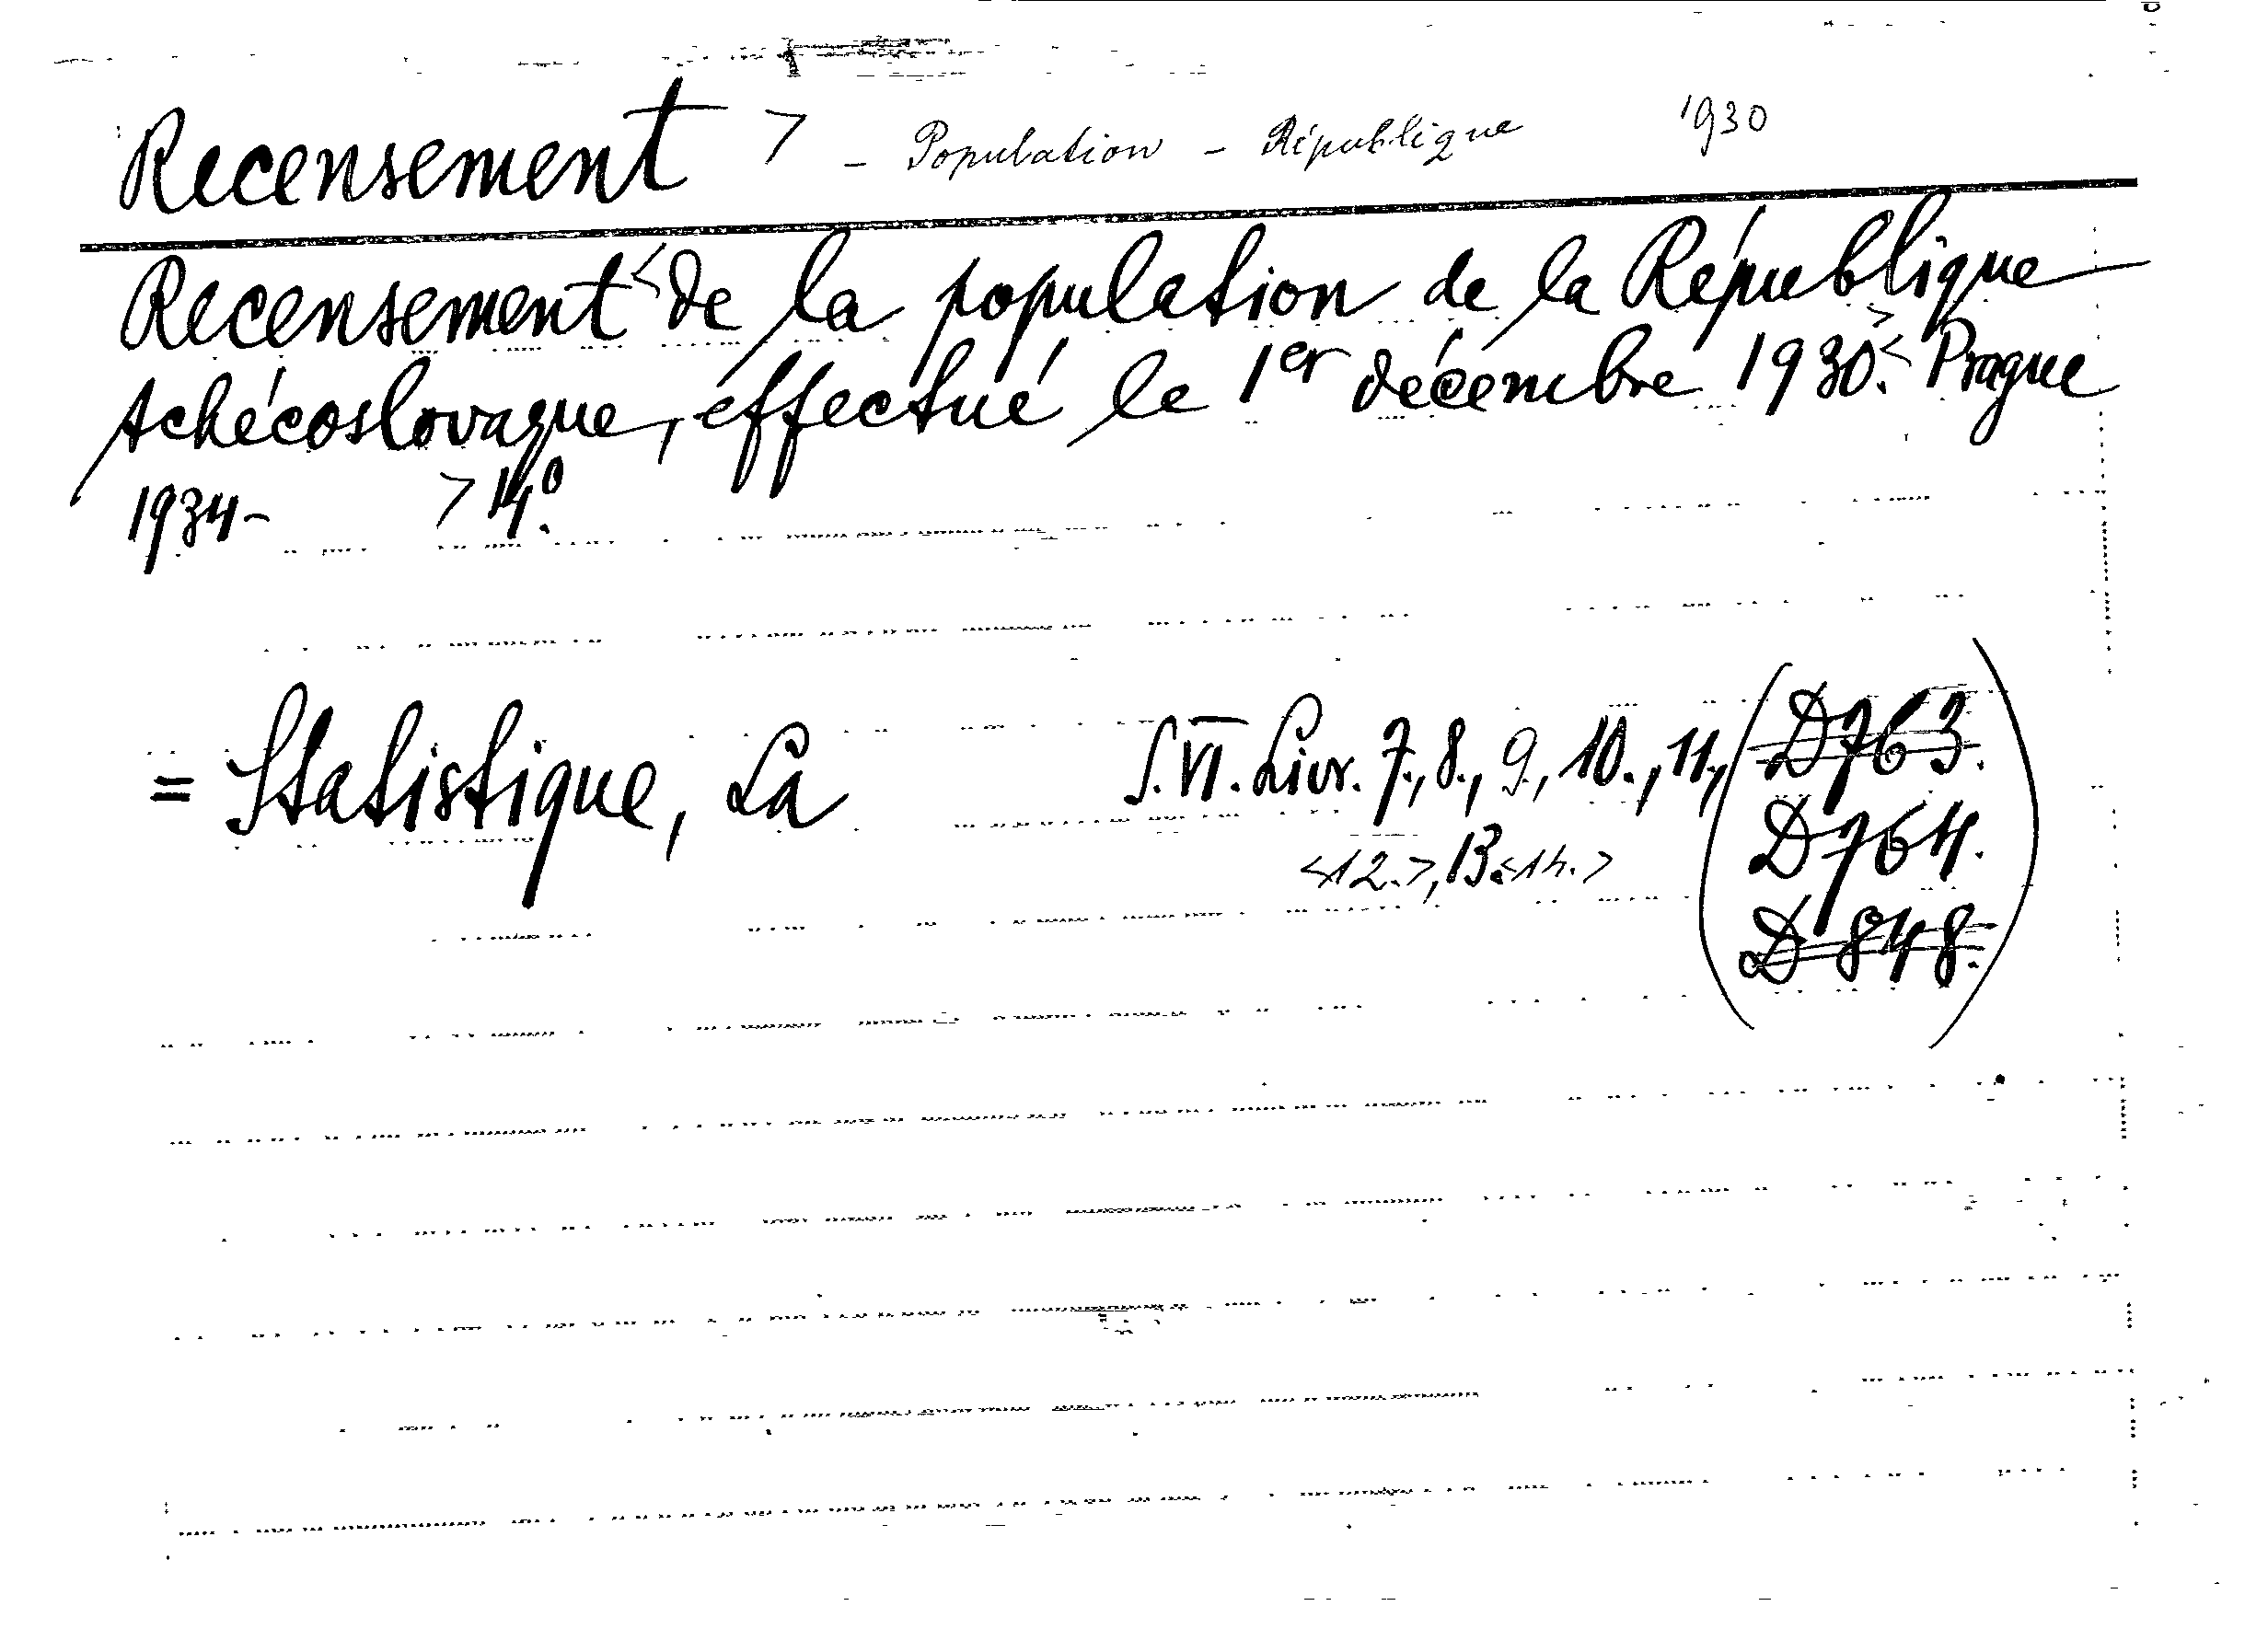 Recensement > - Population - République 1930
Recensement < de la population de la République
tchécoslovaque, effectué le 1er décembre 1930. > < Prague
1934- > 4°.
= Statistique, La S. VI. Livr. 7., 8., 9., 10., 11., (D763.
<12.>, 13. <14.> D764.
D848.)